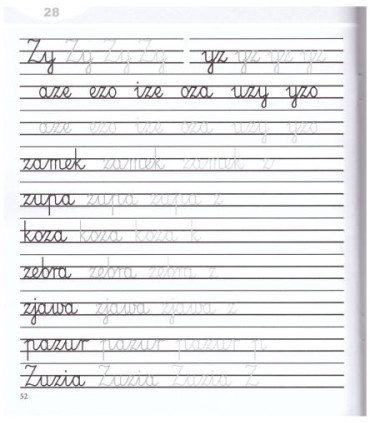 28
Zy Zy Zy Zy yz yz yz yz
aze ezo ize oza uzy yzo
aze ezo ize oza uzy yzo
zamek zamek zamek z
zupa zupa zupa z
koza koza koza k
zebra zebra zebra z
zjawa zjawa zjawa z
pazur pazur pazur p
Zuzia Zuzia Zuzia Z
52